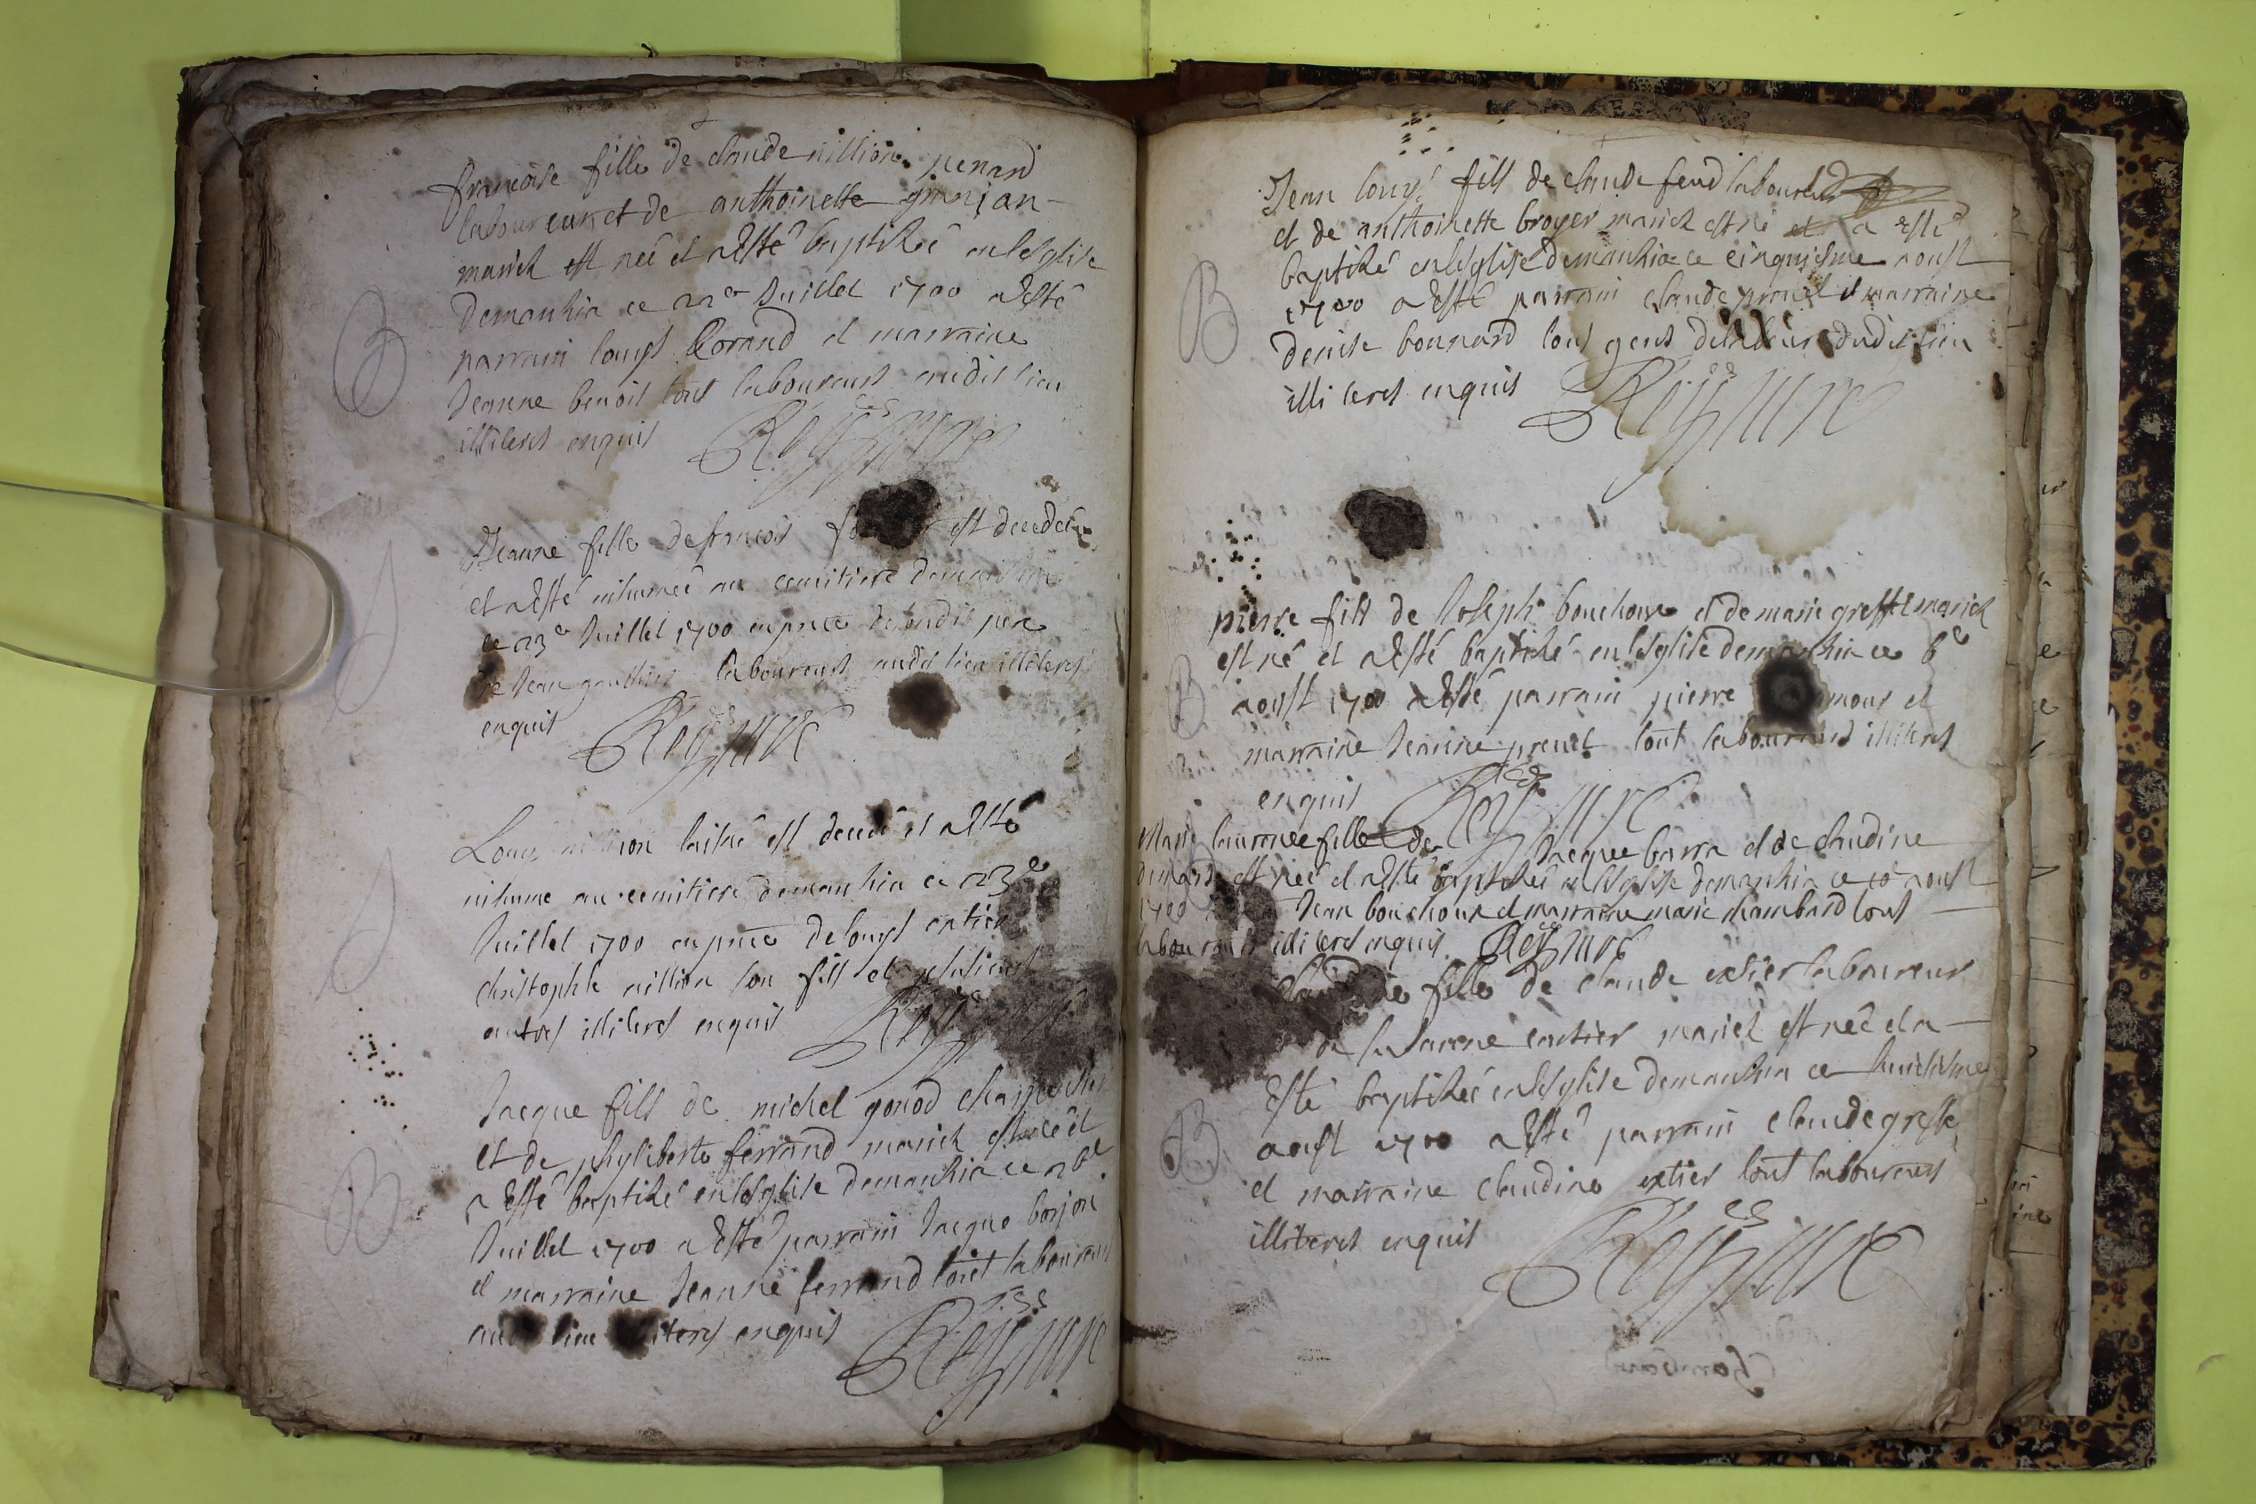 B
francoise fille de claude million penard
laboureur et de anthoinette granjan
mariez est neé et a Esté baptiseé en lesglise
demanhia ce 22e Juillet 1700 a Esté
parrain louys Corand et marraine
Jeanne benoit tous laboureurs audit lieu
illiterés enquis Rey curé
Jeanne fille de francois est decedeé
et a Esté inhumeé au cemitiere demanhia
ce 23e Juillet 1700 en pnce dudit pere
de Jean gauthier laboureurs audit lieu illiterés
enquis Rey curé
Louys million laisné est decedé et a Esté
inhumé au cemitiere demanhia ce 23e
Juillet 1700 en pnce de louys extier
christophle million son fils et plusieurs
autres illiterés enquis Rey curé
B
Jacque fils de michel gonod
et de phyliberte ferrand mariez est né et
a Esté baptisé en lesglise demanhia ce 26e
Juillet 1700 a Esté parrain Jacque borjon
et marraine Jeanne ferrand tout laboureurs
audit lieu illiterés enquis Rey curé
B
Jean louys fils de claude feud laboureur
et de anthoinette broyer mariez est né et a esté
baptisé en lesglise demanhia ce cinquiesme aoust
1700 a Esté parrain claude et marraine
denise bonnard tous gens de labeur dudit lieu
illiterés enquis Rey curé
B
pierre fils de Joseph bouchoux et de marie greffet mariez
est né et a Esté baptisé en lesglise demanhia ce 6e
aoust 1700 a Esté parrain pierre et
marraine Jeanne prevet tout laboureurs illiterés
enquis Rey curé
Marie laurence fille de Jacque barra et de claudine
est neé et a Esté baptiseé en lesglise demanhia ce aoust
1700 Jean bouchoux et marraine marie chambard tous
laboureurs illiterés enquis Rey curé
B
fille de claude extier laboureur
extier mariez est neé et a
Esté baptiseé en lesglise demanhia ce huictiesme
aoust 1700 a Esté parrain claude greffet
et marraine claudine extier tout laboureurs
illiterés enquis Rey curé